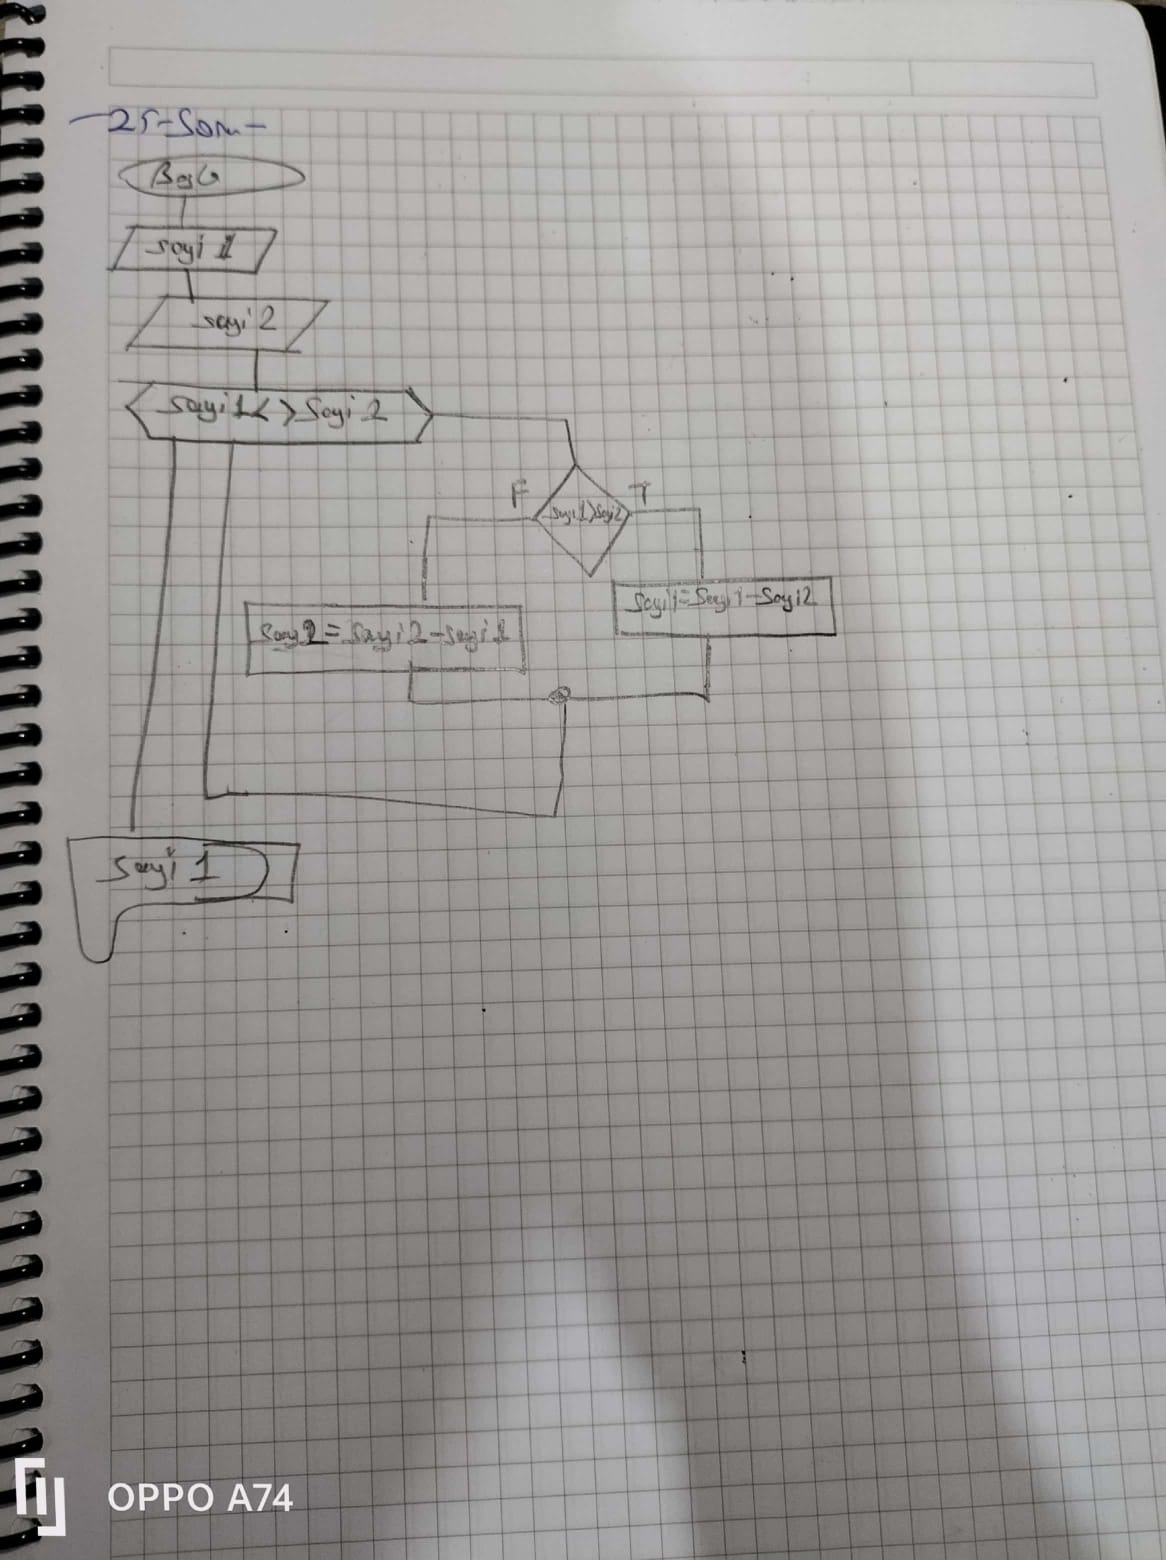 -25-Soru-
Başla
sayi 1
sayi 2
sayi1<>Sayi 2
F T
Sayi1>Sayi2
Sayi1=Sayi1-Sayi2
Sayi2=Sayi2-sayi1
Sayi 1
OPPO A74